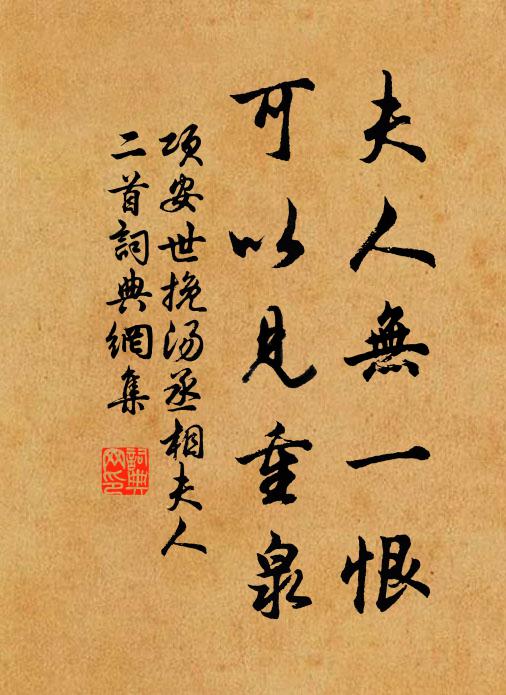 夫人無一恨
可以見重泉
項安世挽湯丞相夫人
二首詞典網集
詞典
網印